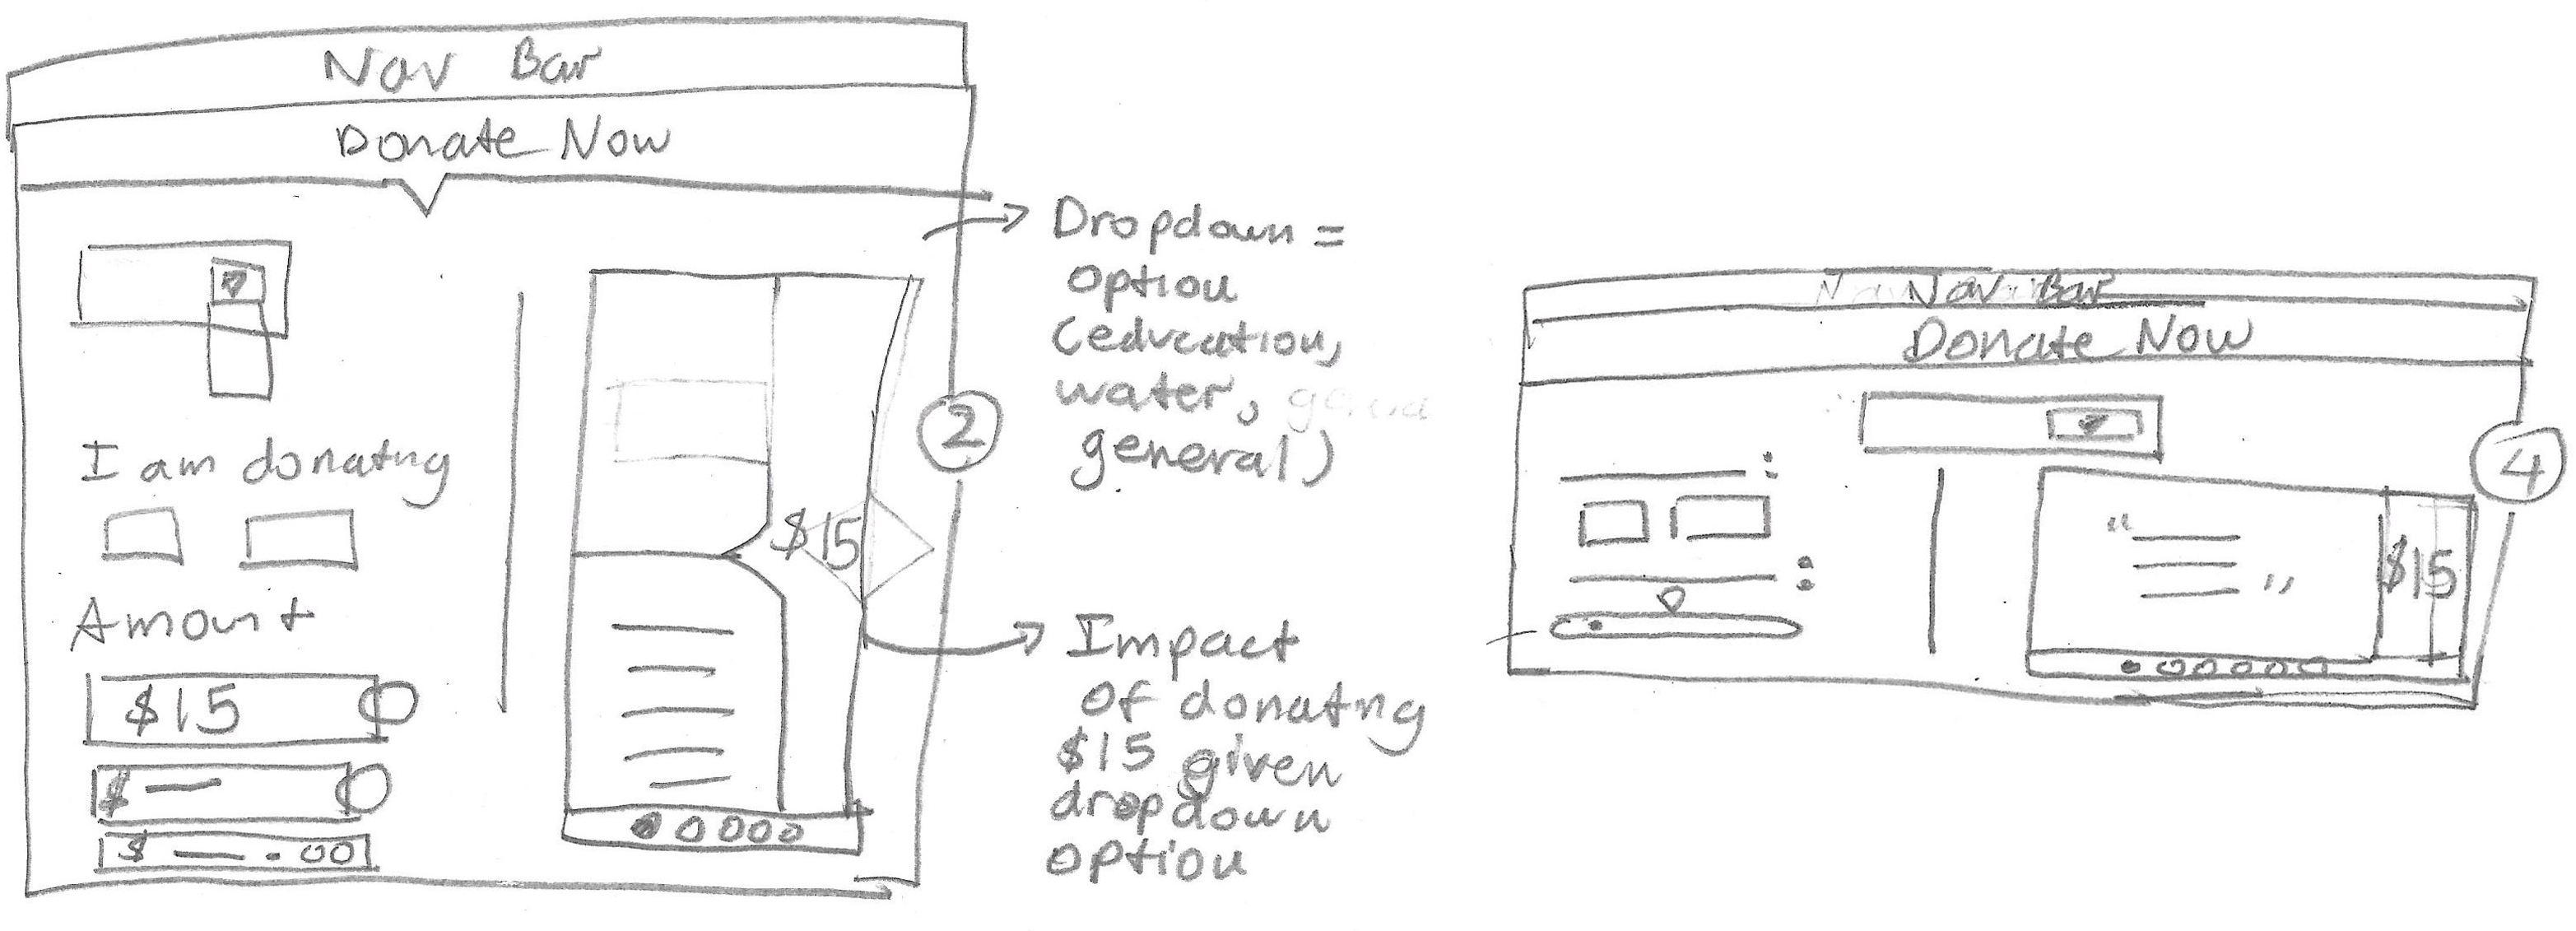 Nav Bar
Donate Now
I am donatng
Amount
$15
$
$ . 00
$15
2
Dropdown =
option
(education,
water,
general)
Impact
of donatng
$15 given
dropdown
option
Nav Bar
Donate Now
4
"
"
$15